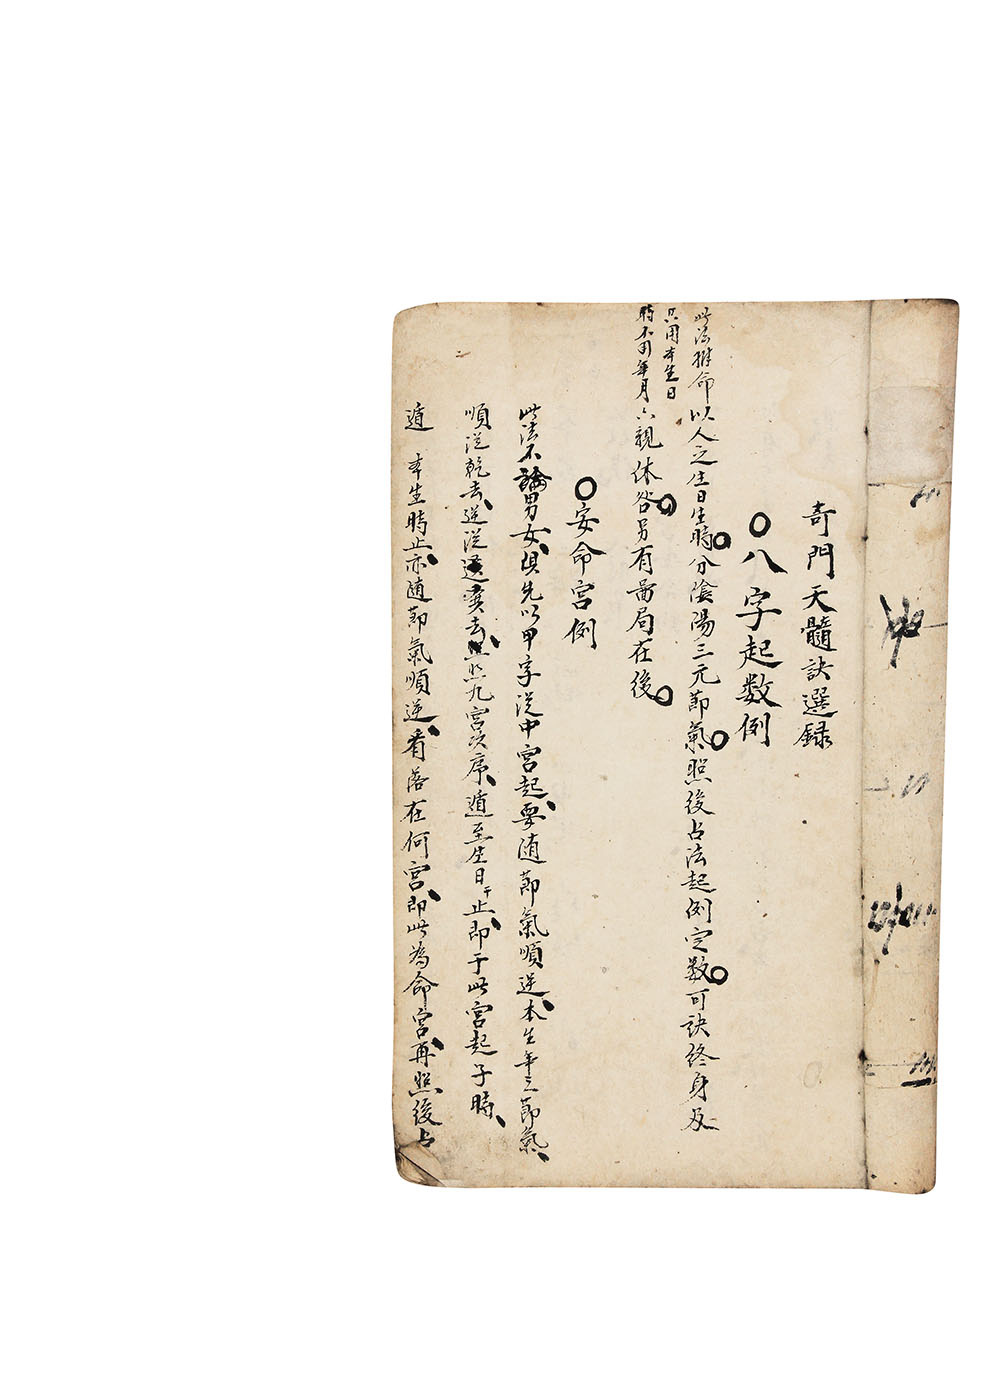 奇門天髓訣選録
八字起数例
此法推命以人之生日生時分陰陽三元節氣照後占法起例定数可訣終身及
只用本生日
時不用年月六親休咎另有啚局在後
安命宮例
此法不論男女俱先以甲字從中宮起要随節氣順逆本生年之節氣
順從乾去逆從巽去照九宮次序遁至生日干止即于此宮起子時
遁本生時止亦随節氣順逆看落在何宮即此為命宮再照後占